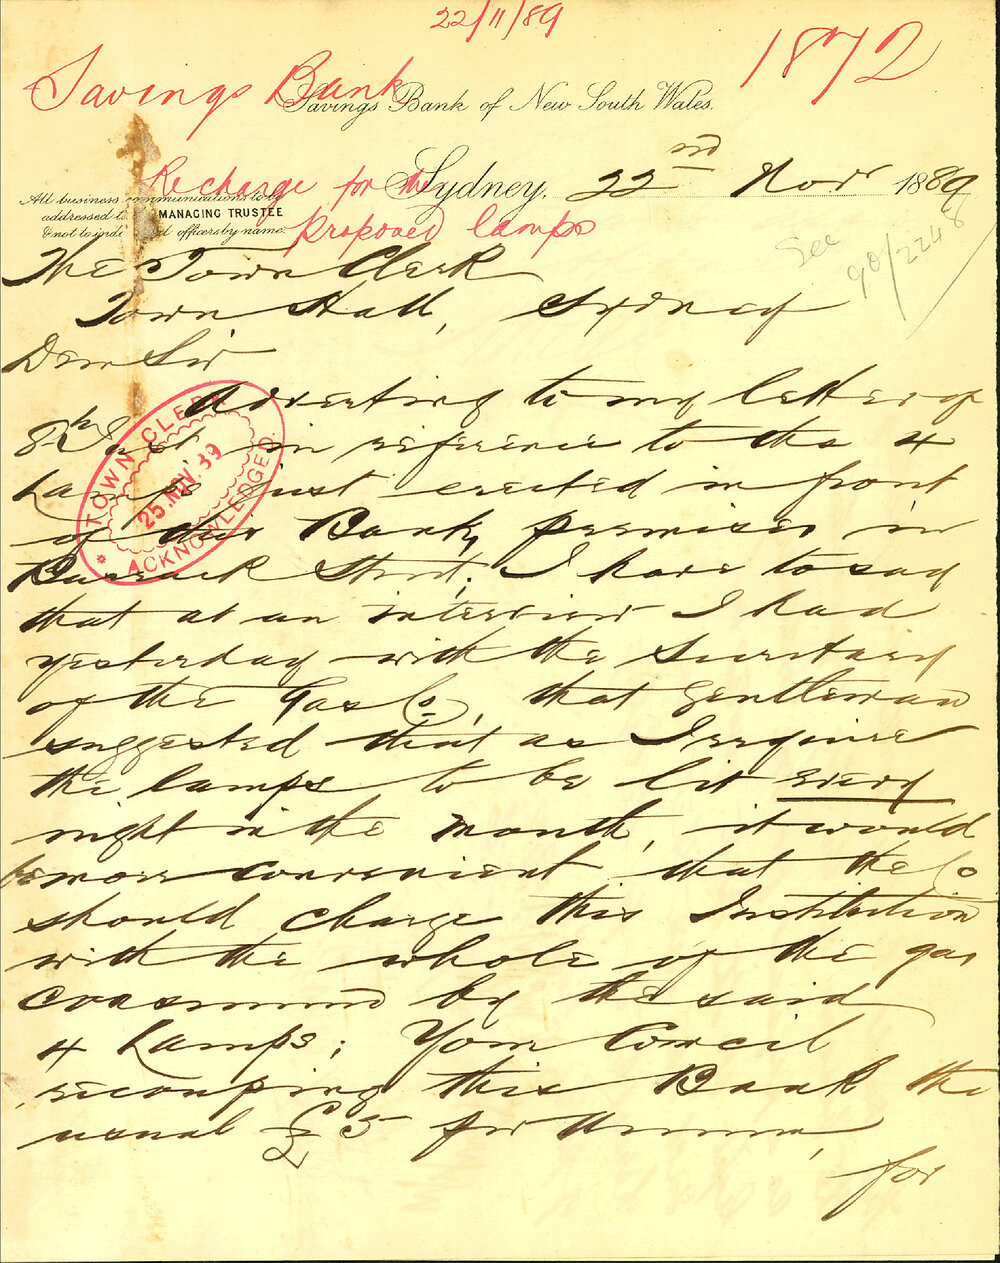 22/11/89
1872
Savings Bank
Savings Bank of New South Wales.
Recharge for the
proposed lamps
Sydney, 22nd Novr 1889
All business communications to be
addressed to MANAGING TRUSTEE
& not to indi d officers by name.
See
90/2248
The Town Clerk
Town Hall, Sydney
Dear Sir
Adverting to my letter of
8th in reference to the 4
Lamps just erected in front
of this Bank's premises in
Barrack Street; I have to say
that at an interview I had
yesterday with the Secretary
of the Gas Co, that Gentleman
suggested that as I require
the lamps to be lit every
night in the month, it would
be more convenient that the Co
should charge this Institution
with the whole of the gas
consumed by the said
4 Lamps; Your Council
recouping this Bank the
usual £5 per Annum,
for
TOWN CLERK
25.NOV.89
ACKNOWLEDGED.